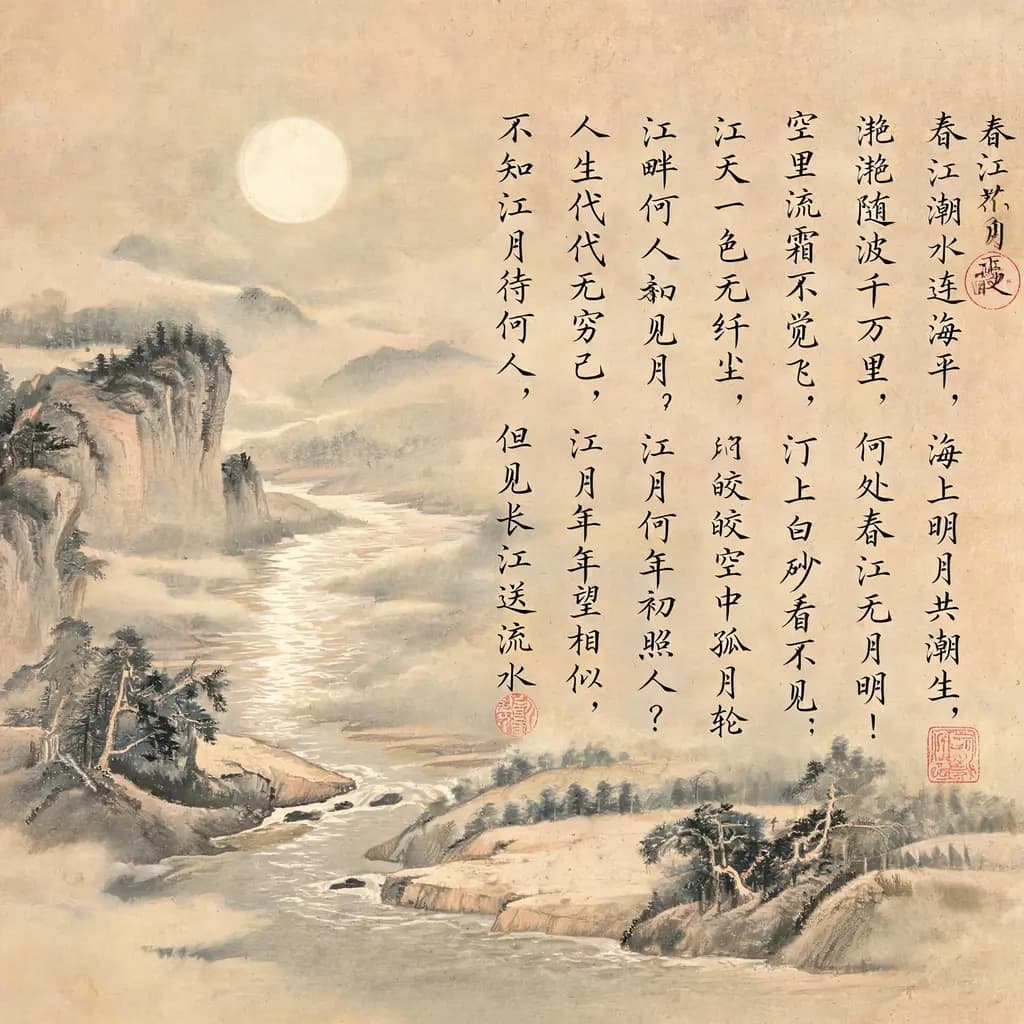 春江
春江潮水连海平，海上明月共潮生，
滟滟随波千万里，何处春江无月明！
空里流霜不觉飞，汀上白砂看不见；
江天一色无纤尘，皎皎空中孤月轮
江畔何人见月？江月何年初照人？
人生代代无穷已，江月年年望相似，
不知江月待何人，但见长江送流水